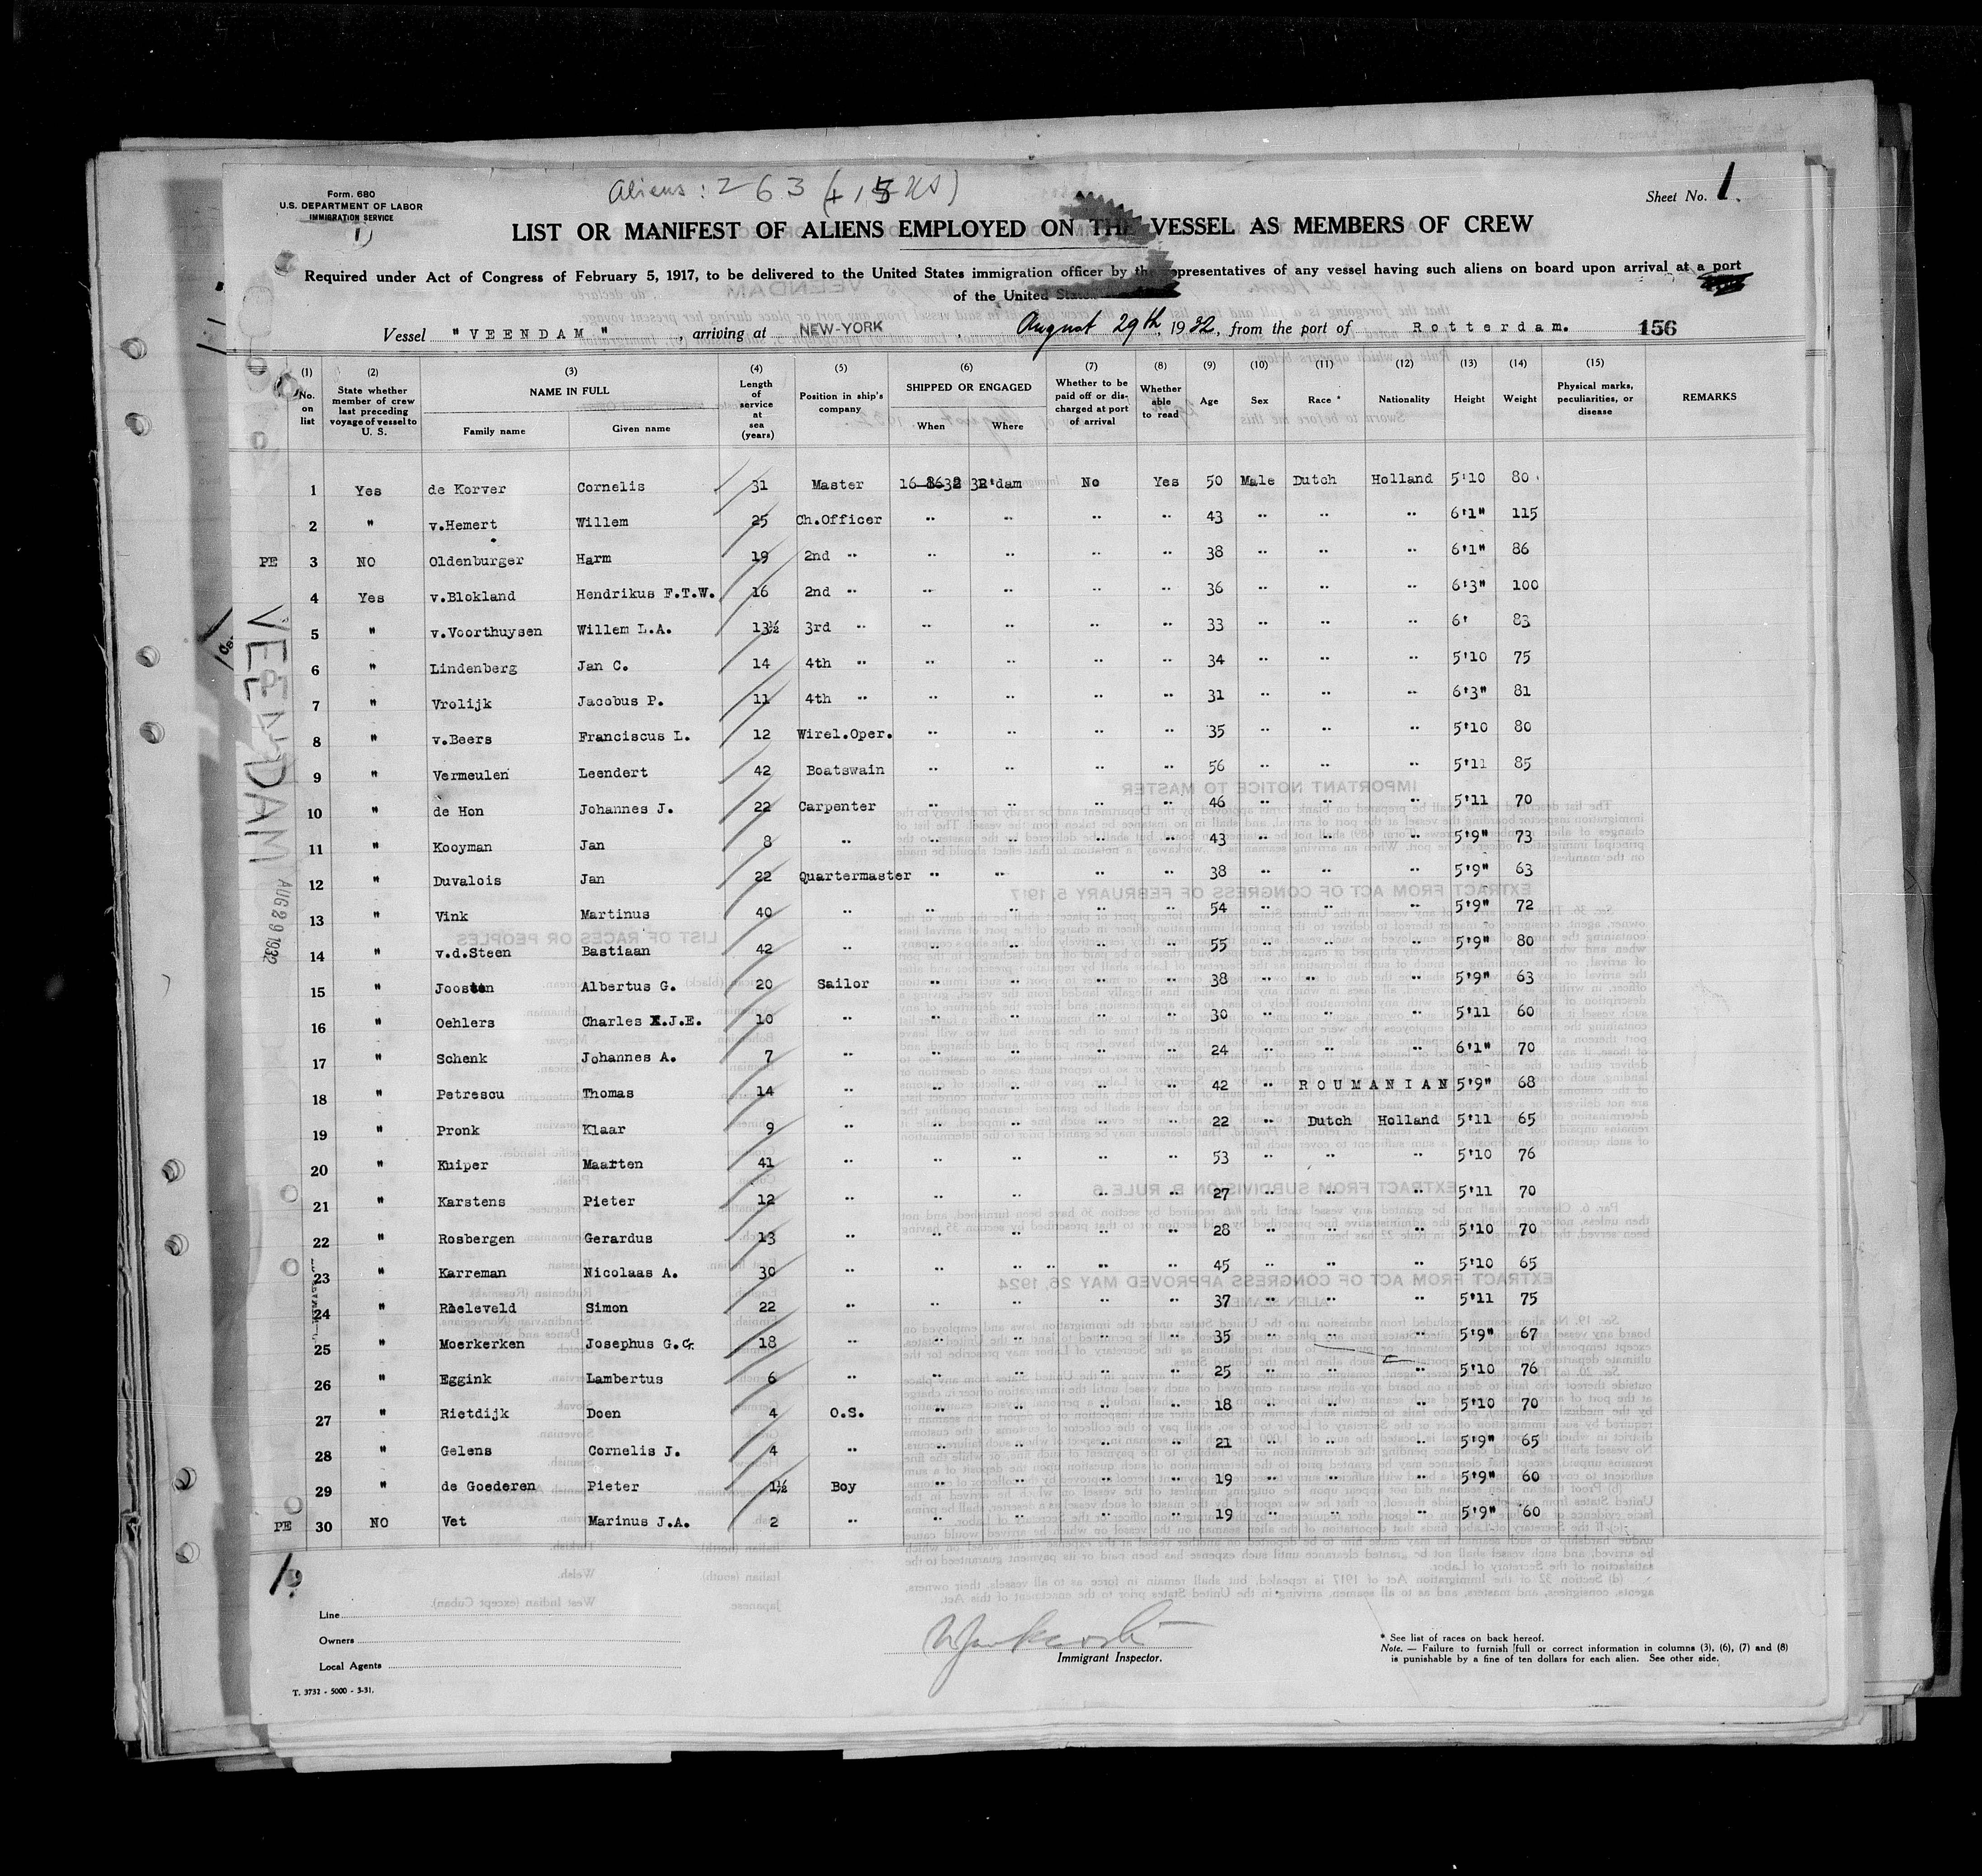 Form. 680
U.S. DEPARTMENT OF LABOR
IMMIGRATION SERVICE
Aliens: 263
Sheet No. 1.
LIST OR MANIFEST OF ALIENS EMPLOYED ON THE VESSEL AS MEMBERS OF CREW
Required under Act of Congress of February 5, 1917, to be delivered to the United States immigration officer by the representatives of any vessel having such aliens on board upon arrival at a port
of the United States
Vessel "VEENDAM", arriving at NEW-YORK, August 29th, 1932, from the port of Rotterdam. 156
(1) No. on list (2) State whether member of crew last preceding voyage of vessel to U. S. (3) NAME IN FULL Family name Given name (4) Length of service at sea (years) (5) Position in ship's company (6) SHIPPED OR ENGAGED When Where (7) Whether to be paid off or discharged at port of arrival (8) Whether able to read (9) Age (10) Sex (11) Race * (12) Nationality (13) Height (14) Weight (15) Physical marks, peculiarities, or disease REMARKS
1 Yes de Korver Cornelis 31 Master R'dam No Yes 50 Male Dutch Holland 5'10 80
2 " v.Hemert Willem 25 Ch.Officer " " " " 43 " " " 6'1" 115
PE 3 NO Oldenburger Harm 19 2nd " " " " " 38 " " " 6'1" 86
4 Yes v.Blokland Hendrikus F.T.W. 16 2nd " " " " " 36 " " " 6'3" 100
5 " v.Voorthuysen Willem L.A. 13½ 3rd " " " " " 33 " " " 6' 83
6 " Lindenberg Jan C. 14 4th " " " " " 34 " " " 5'10 75
7 " Vrolijk Jacobus P. 11 4th " " " " " 31 " " " 6'3" 81
8 " v.Beers Franciscus L. 12 Wirel.Oper. " " " " 35 " " " 5'10 80
9 " Vermeulen Leendert 42 Boatswain " " " " 56 " " " 5'11 85
10 " de Hon Johannes J. 22 Carpenter " " " " 46 " " " 5'11 70
11 " Kooyman Jan 8 " " " " " 43 " " " 5'9" 73
12 " Duvalois Jan 22 Quartermaster " " " " 38 " " " 5'9" 63
13 " Vink Martinus 40 " " " " " 54 " " " 5'9" 72
14 " v.d.Steen Bastiaan 42 " " " " " 55 " " " 5'9" 80
15 " Joosten Albertus G. 20 Sailor " " " " 38 " " " 5'9" 63
16 " Oehlers Charles J.E. 10 " " " " " 30 " " " 5'11 60
17 " Schenk Johannes A. 7 " " " " " 24 " " " 6'1" 70
18 " Petrescu Thomas 14 " " " " " 42 " ROUMANIAN 5'9" 68
19 " Pronk Klaar 9 " " " " " 22 " Dutch Holland 5'11 65
20 " Kuiper Maarten 41 " " " " " 53 " " " 5'10 76
21 " Karstens Pieter 12 " " " " " 27 " " " 5'11 70
22 " Rosbergen Gerardus 13 " " " " " 28 " " " 5'10 70
23 " Karreman Nicolaas A. 30 " " " " " 45 " " " 5'10 65
24 " Roeleveld Simon 22 " " " " " 37 " " " 5'11 75
25 " Moerkerken Josephus G.C. 18 " " " " " 35 " " " 5'9" 67
26 " Eggink Lambertus 6 " " " " " 25 " " " 5'10 76
27 " Rietdijk Doen 4 O.S. " " " " 18 " " " 5'10 70
28 " Gelens Cornelis J. 4 " " " " " 21 " " " 5'9" 65
29 " de Goederen Pieter 1½ Boy " " " " 19 " " " 5'9" 60
PE 30 NO Vet Marinus J.A. 2 " " " " " 19 " " " 5'9" 60
VEENDAM AUG 29 1932
Line
Owners
Local Agents
T. 3732 - 5000 - 3-31.
Immigrant Inspector.
* See list of races on back hereof.
Note. — Failure to furnish full or correct information in columns (3), (6), (7) and (8)
is punishable by a fine of ten dollars for each alien. See other side.